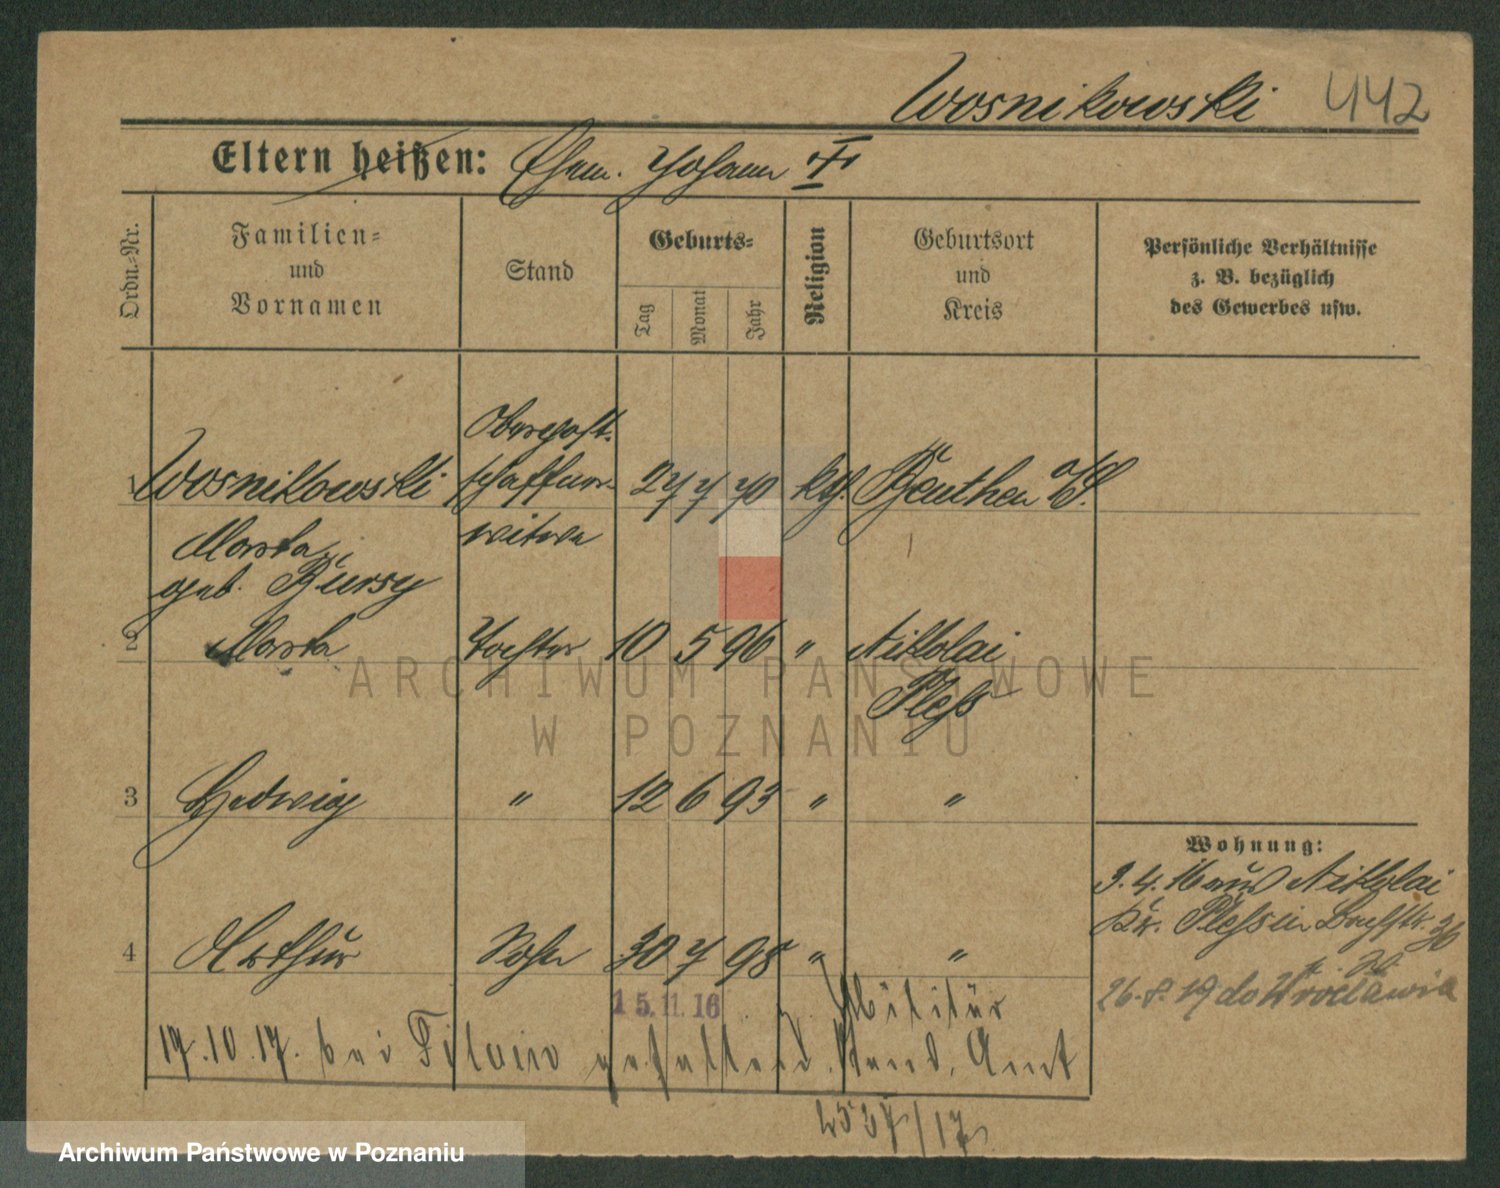 Wosnikowski 442
Eltern heißen: Ehem. Johann †
Ordn.-Nr.
Familien-
und
Vornamen
Stand
Geburts-
Tag
Monat
Jahr
Religion
Geburtsort
und
Kreis
Persönliche Verhältnisse
z. B. bezüglich
des Gewerbes usw.
1 Wosnikowski
Marta
geb. Bursy
schaffner-
witwe
27 7 70 kth. Beuthen O/S.
2 Marta Tochter 10 5 96 " Nikolai
Pless
3 Hedwig " 12 6 93 " "
4 Arthur Sohn 30 7 98 " "
15.11.16 z. Militär
17.10.17. bei gefallen. Stand. Amt
2537/17
Wohnung:
3.4.16 aus Nikolai
Kr. Pless in Bachstr. 36
26.8.19 do Wrocławia
ARCHIWUM PAŃSTWOWE
W POZNANIU
Archiwum Państwowe w Poznaniu